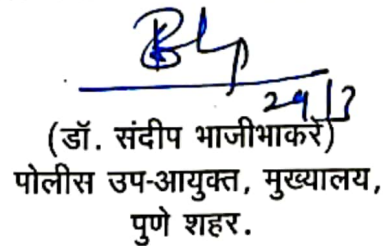 29/3
(डॉ. संदीप भाजीभाकरे)
पोलीस उप-आयुक्त, मुख्यालय,
पुणे शहर.